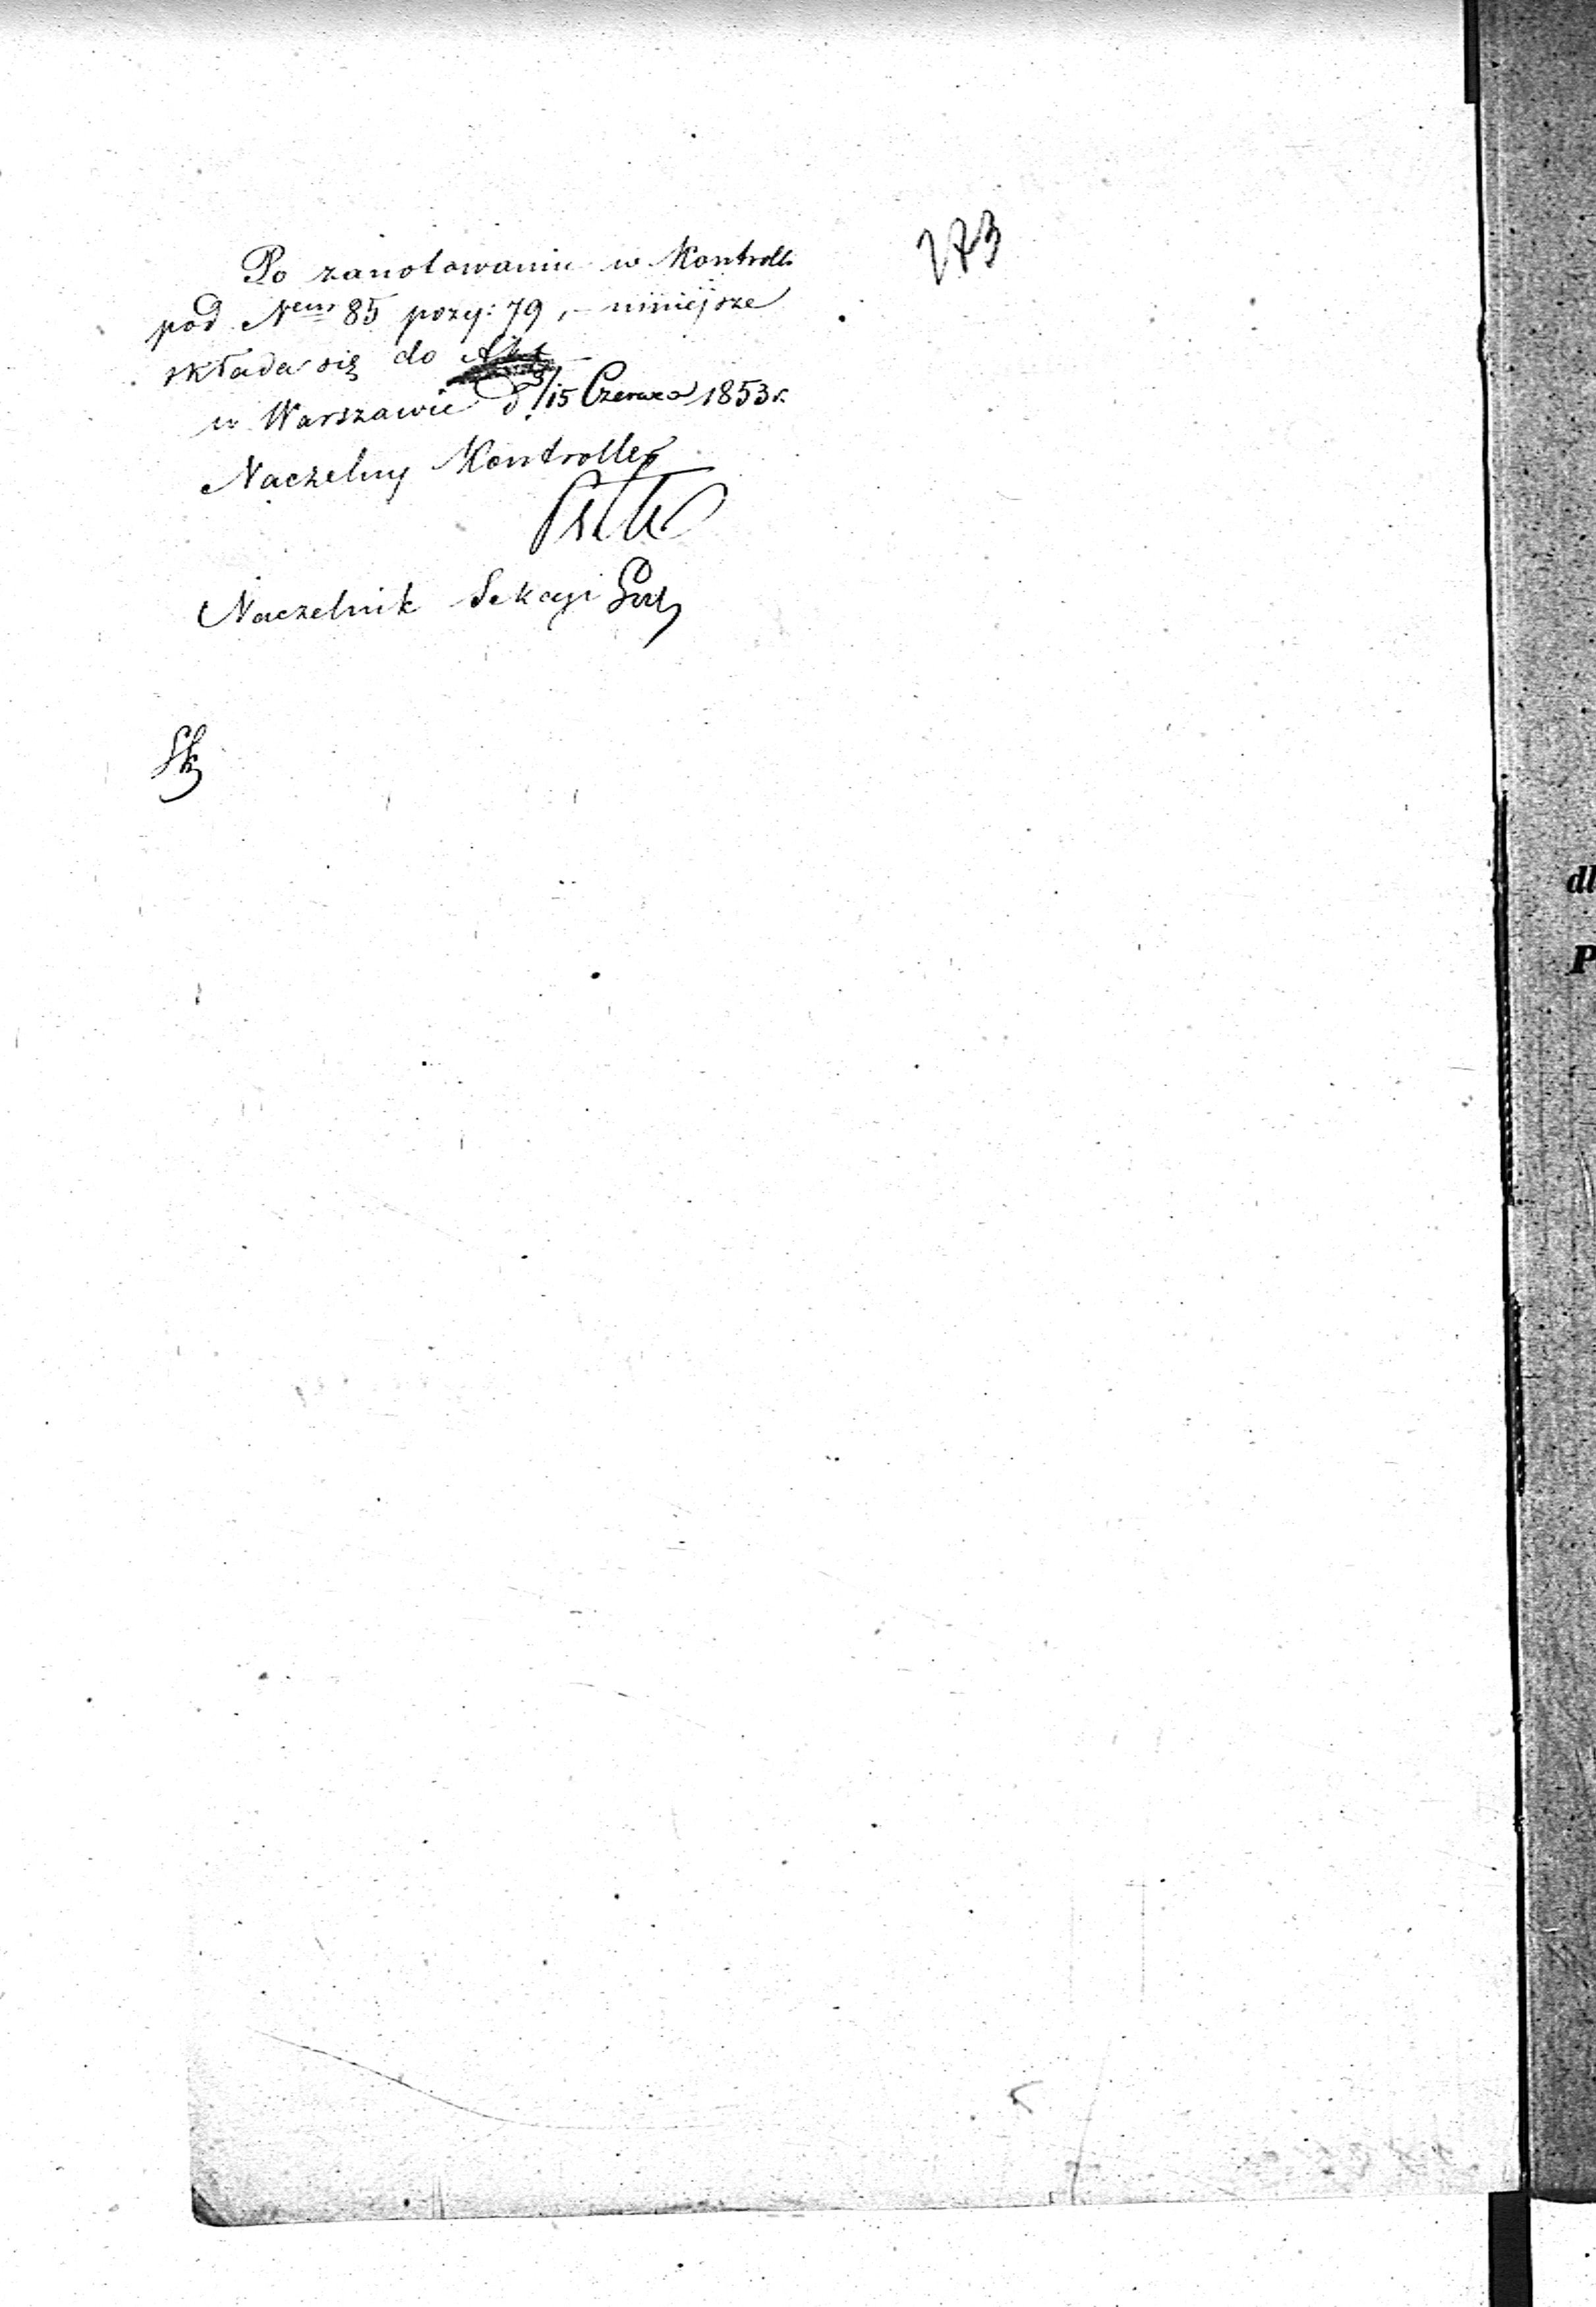 273
Po zanotowaniu w Kontrolli
pod Nem 85 pozy: 79, - niniejsze
składa się do Akt
w Warszawie d. 3/15 Czerwca 1853 r.
Naczelny Kontroller
Naczelnik Sekcyi
dl
P